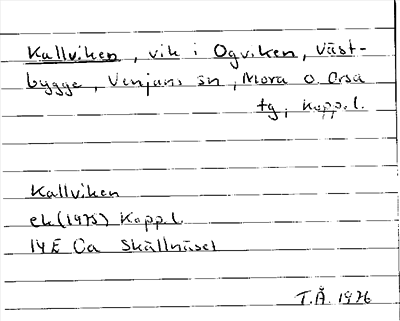 Kallviken, vik i Ogviken, Väst-
bygge, Venjans sn, Mora o. Orsa
tg, Kopp. l.
Kallviken
ek (1975) Kopp. l.
14E 0a Skällnäset
T.Å. 1976